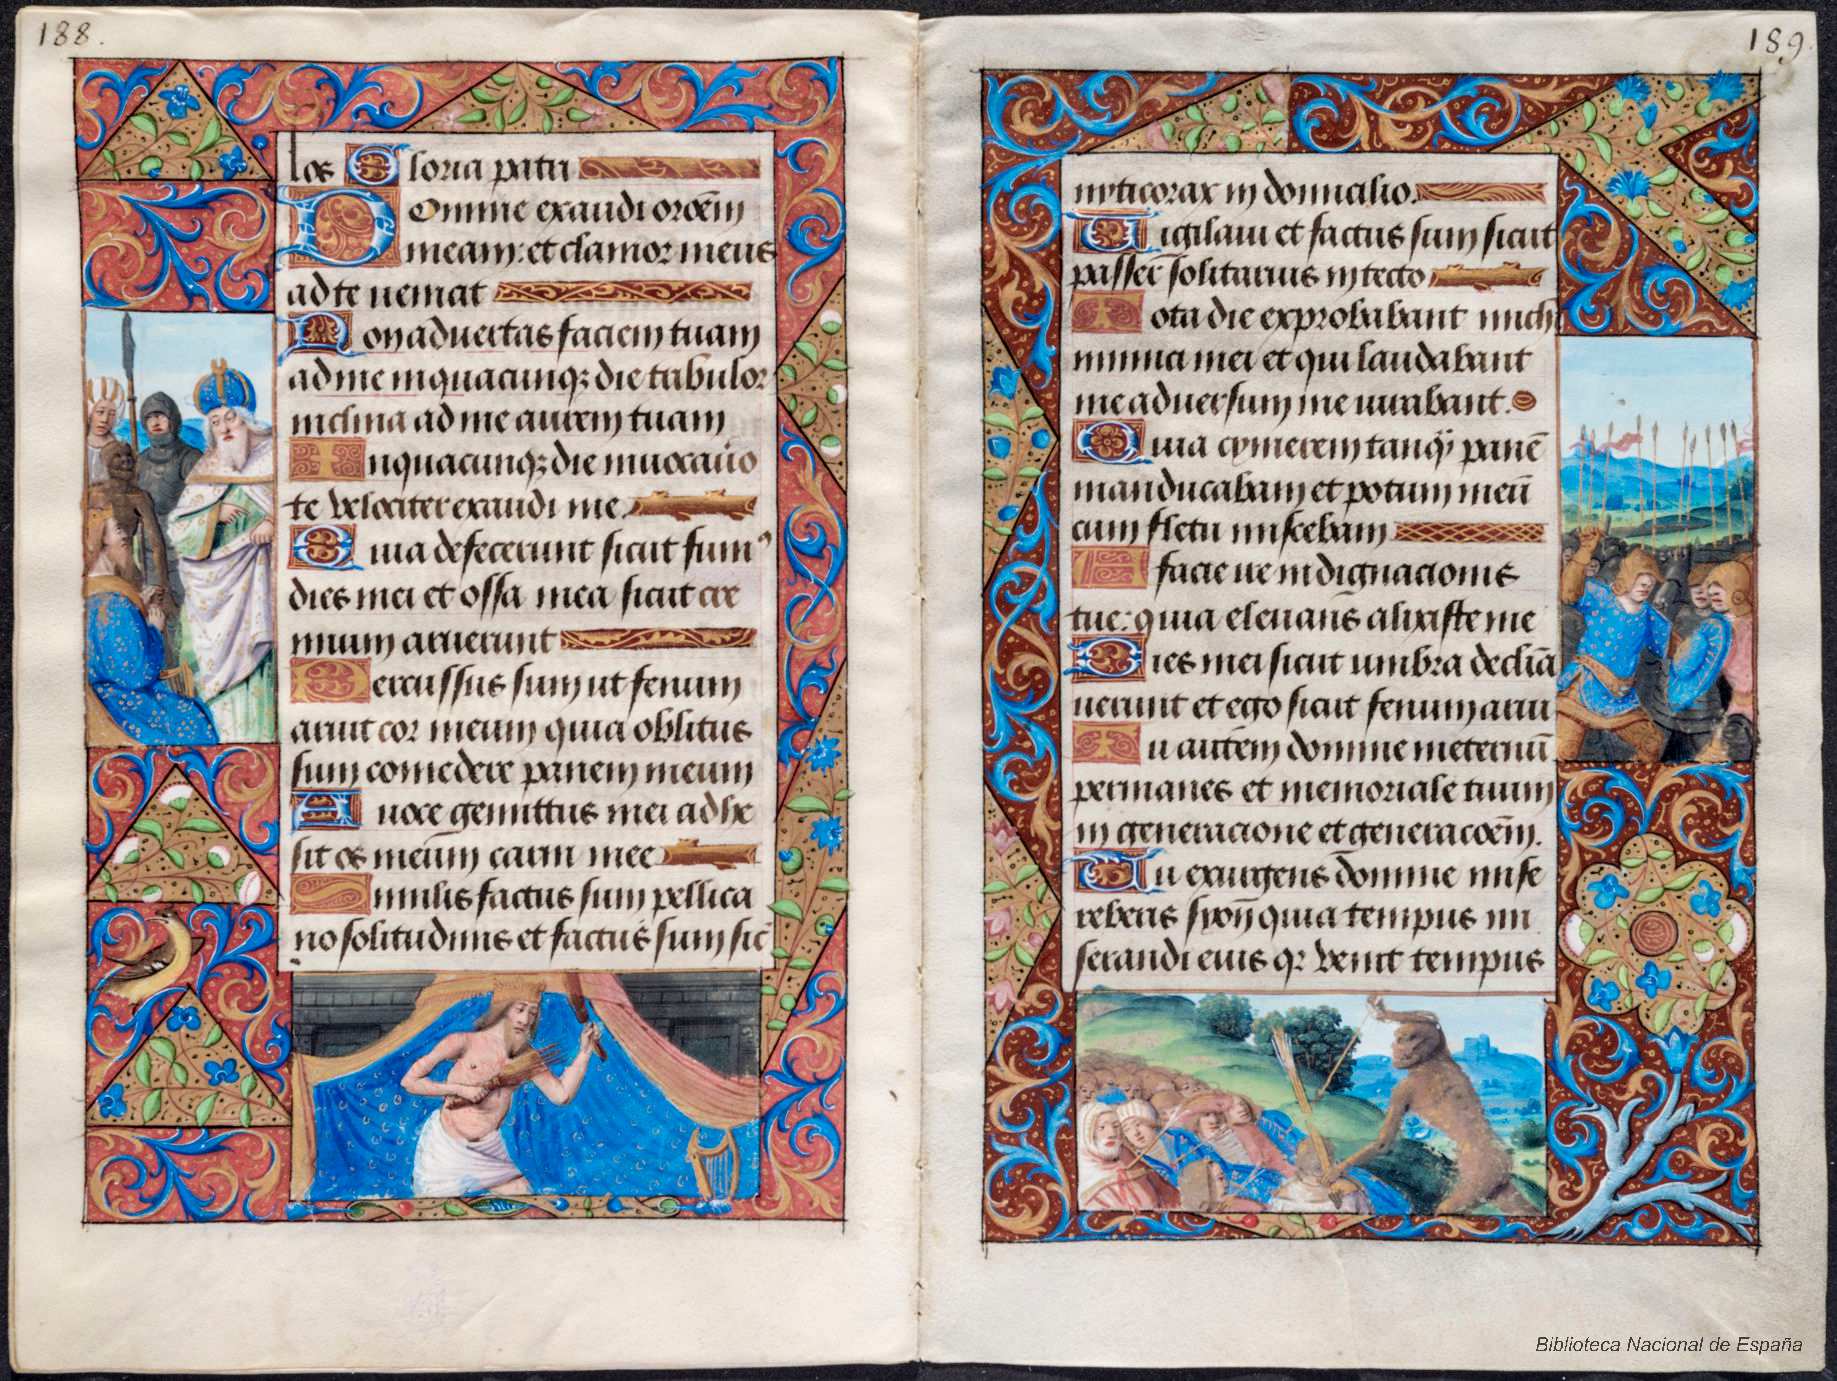 188.
los Gloria patri
Domine exaudi oroēm
meam: et clamor meus
ad te veniat
Non advertas faciem tuam
ad me in quacunq; die tribulor
inclina ad me aurem tuam
In quacunq; die invocavero
te velociter exaudi me
Quia defecerunt sicut fum9
dies mei et ossa mea sicut cre
mium aruerunt
Percussus sum ut fenum
aruit cor meum quia oblitus
sum comedere panem meum
A voce gemittus mei adhe
sit os meum carni mee
Similis factus sum pellica
no solitudinis et factus sum sic̄
189.
nyticorax in domicilio.
Vigilavi et factus sum sicut
passer solitarius in tecto
Tota die exprobabant michi
inimici mei et qui laudabant
me adversum me iurabant.
Quia cynerem tanq̄ panē
manducabam et potum meū
cum fletu miscebam
A facie ire indignacionis
tue: quia elevans alixiste me
Dies mei sicut umbra declina
verunt et ego sicut fenum arui
Tu autem domine ineternū
permanes et memoriale tuum
in generacione et generacoēm.
Tu exurgens domine mise
reberis syon quia tempus mi
serandi eius qr venit tempus
Biblioteca Nacional de España